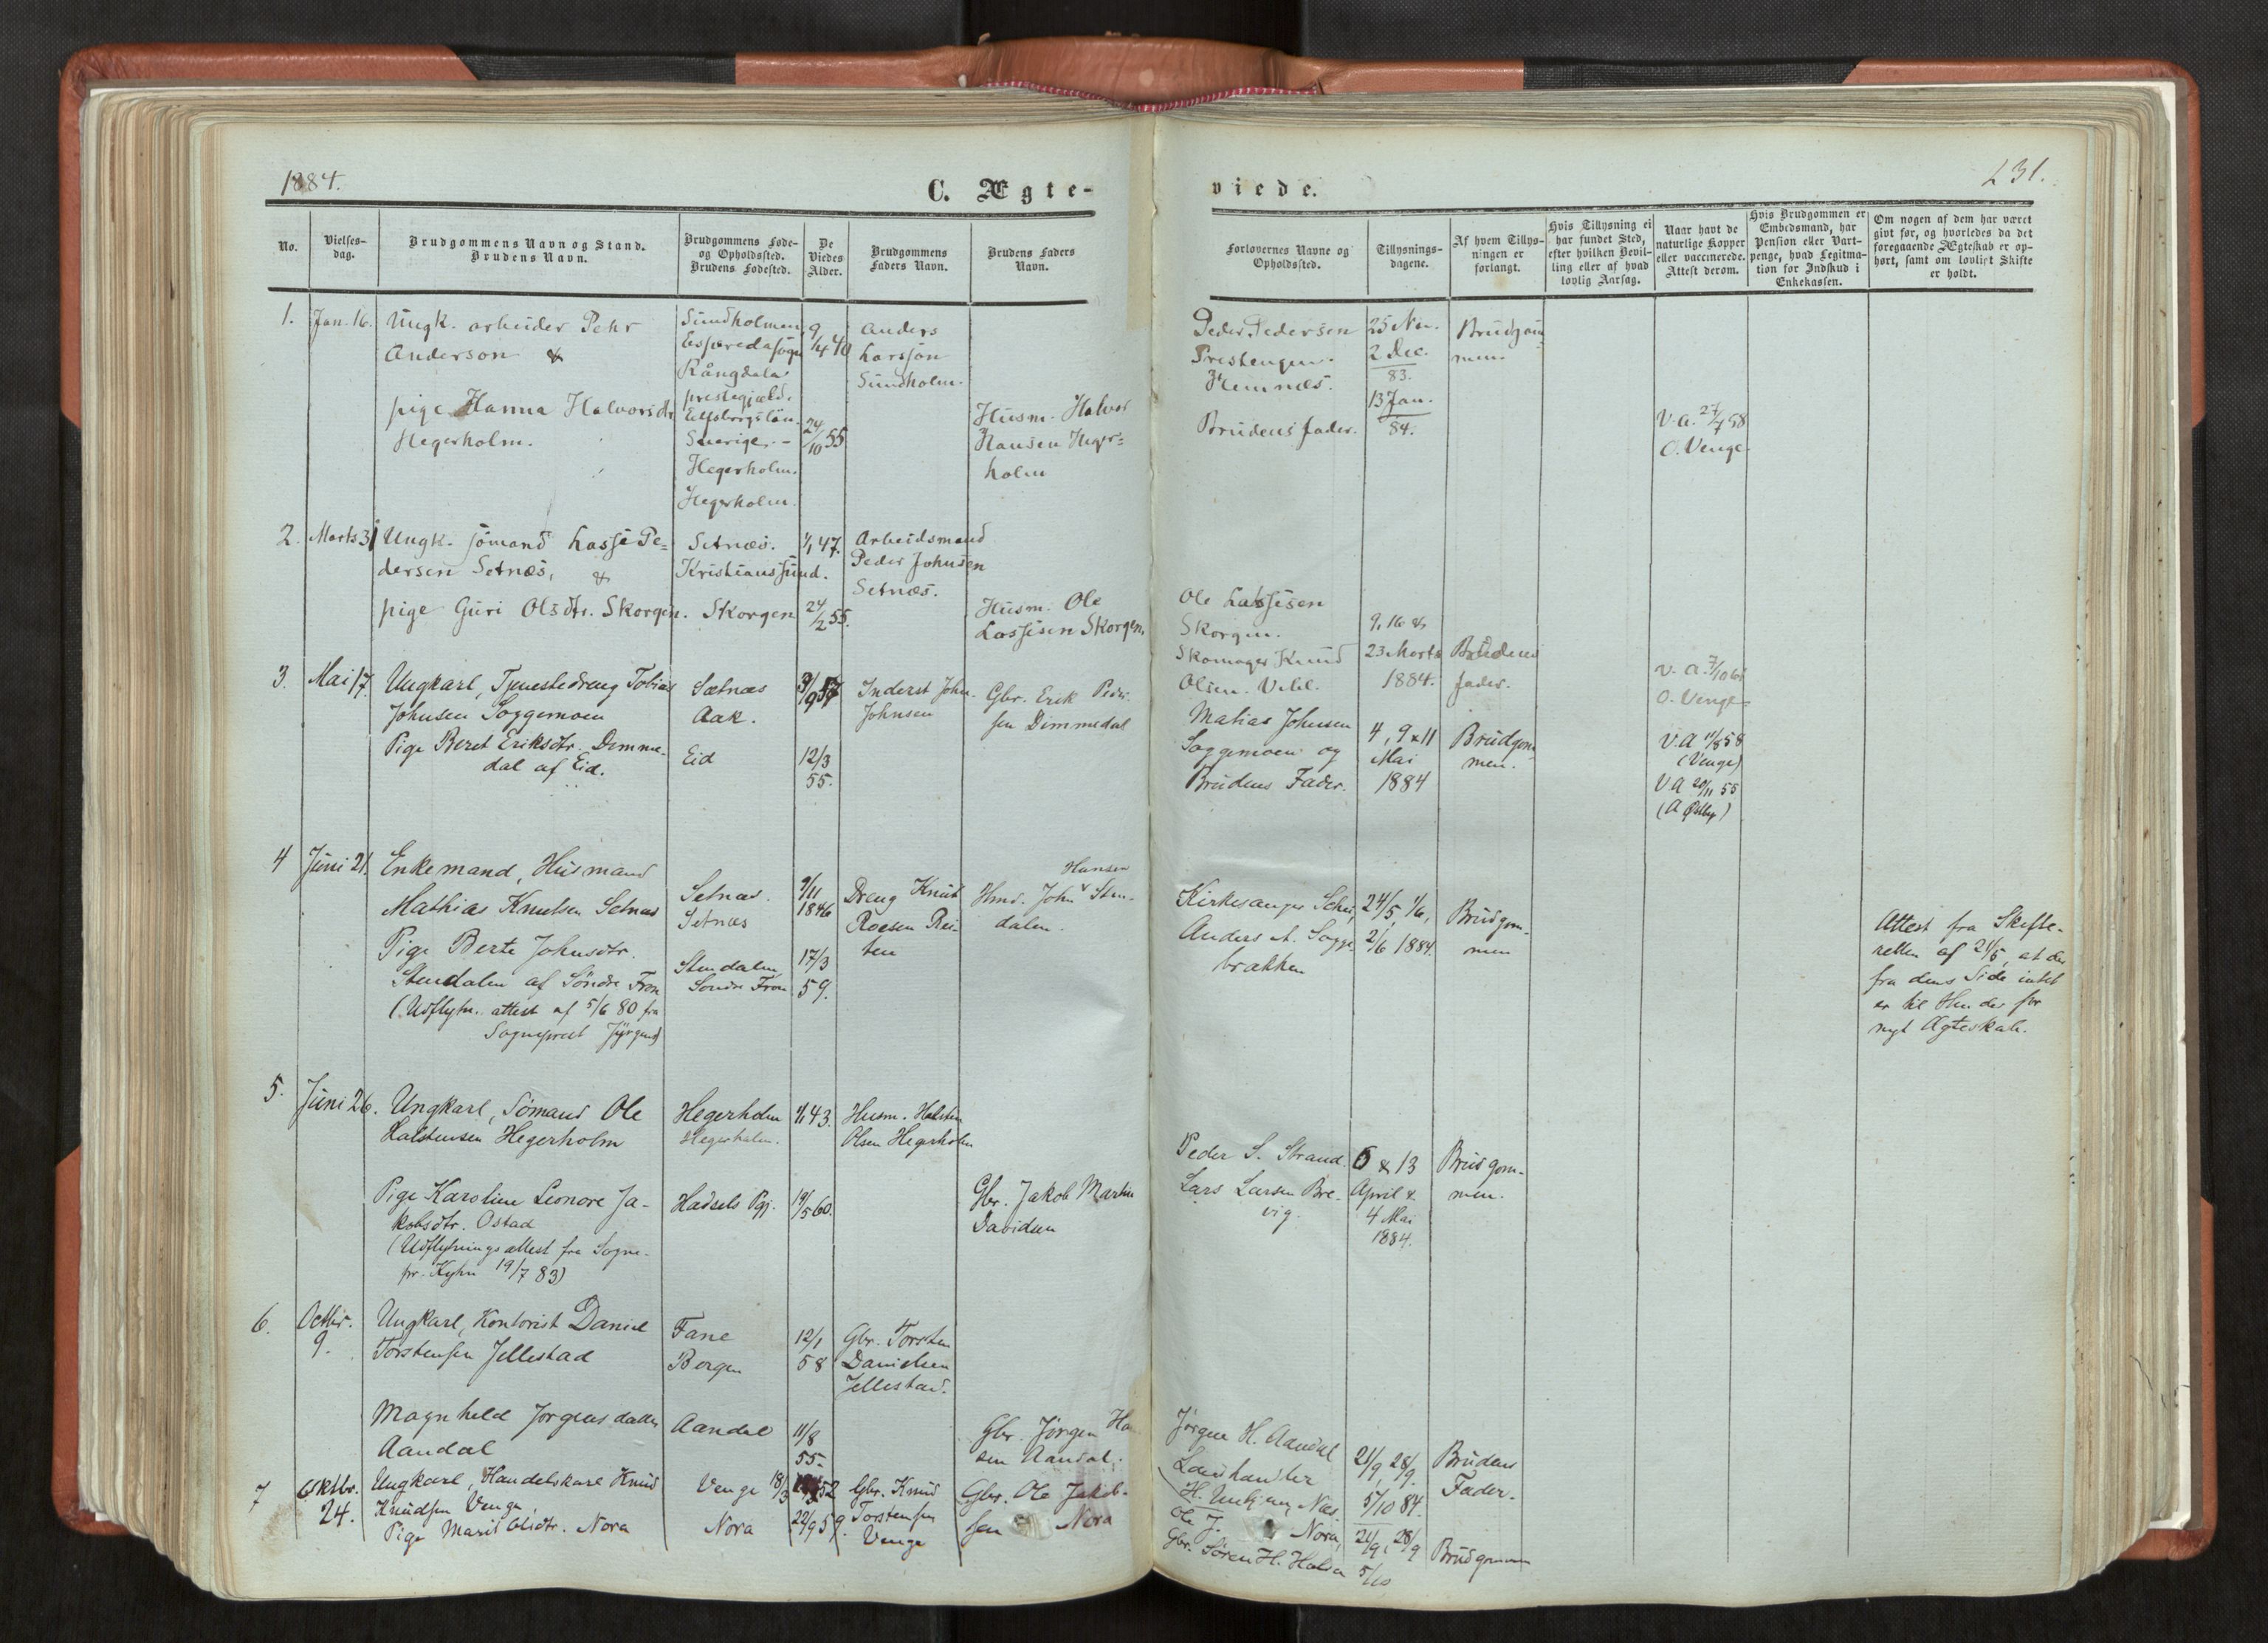 1884.
C. Ægte-
viede.
231.
No.
Vielses-
dag.
Brudgommens Navn og Stand.
Brudens Navn.
Brudgommens Føde-
og Opholdssted.
Brudens Fødested.
De
Viedes
Alder.
Brudgommens
Faders Navn.
Brudens Faders
Navn.
Forlovernes Navne og
Opholdssted.
Tillysnings-
dagene.
Af hvem Tillys-
ningen er
forlangt.
Hvis Tillysning ei
har fundet Sted,
efter hvilken Bevil-
ling eller af hvad
lovlig Aarsag.
Naar havt de
naturlige Kopper
eller vaccinerede.
Attest derom.
Hvis Brudgommen er
Embedsmand, har
Pension eller Vart-
penge, hvad Legitima-
tion for Indskud i
Enkekassen.
Om nogen af dem har været
givt før, og hvorledes da det
foregaaende Ægteskab er op-
hørt, samt om lovligt Skifte
er holdt.
1.
Jan. 16.
Ungk. arbeider Pehr
Anderson &
pige Hanna Halvorsdtr
Hegerholm.
Sundholmen
Rångdala
prestegjæld.
Elfsborgslän
Sverige. -
Hegerholm.
Hegerholm.
9/4 40
24/10 55
Anders
Larsson
Sundholm.
Husm. Halvor
Hansen Heger=
holm
Peder Pedersen
Prestengen.
Hemnæs.
Brudens fader.
25 Nov.
2 Dec.
83.
13 Jan.
84.
Brudgom
men.
V. a. 27/7 58
O. Venge
2.
Marts 31
Ungk. sömand Lasse Pe=
dersen Setnæs, &
pige Guri Olsdtr. Skorgen.
Setnæs.
Kristianssund.
Skorgen
1/1 47.
24/2 55.
Arbeidsmand
Peder Johnsen
Setnæs.
Husm. Ole
Lassesen Skorgen.
Ole Lassesen
Skorgen.
Skomager Knud
Olsen Vebl.
9, 16 &
23 Marts
1884.
Brudens
fader.
O. Venge
3.
Mai 17.
Ungkarl, Tjenestedreng Tobias
Johnsen Soggemoen
Pige Beret Eriksdtr. Dimme-
dal af Eid.
Sætnæs
Aak.
Eid
12/3
55.
Inderst John
Johnsen
Gbr. Erik Peder
sen Dimmedal
Matias Johnsen
Soggemoen og
Brudens Fader.
4, 9 & 11
Mai
1884
Brudgom
men.
V. A 11/8 58
(Venge)
V. A 20/11 55
4
Juni 21.
Enkemand, Husmand
Mathias Knutsen Setnæs
Pige Berte Johnsdtr.
Stendalen af Söndre Fron
(Udflytn. attest af 5/6 80 fra
Sogneprest
Setnæs.
Setnæs
Stendalen
Sondre Fron
9/11
1846
17/3
59.
Dreng Knut
Roesen Rei-
ten
Hansen
Hmd. John Sten-
dalen.
Kirkesanger
Anders A. Sogge-
brækken
24/5, 1/6,
2/6 1884.
Brudgom-
men
Attest fra Skifte-
retten af 21/5, at der
fra dens Side intet
er til Hinder for
nyt Ægteskab.
5.
Juni 26.
Ungkarl, Sömand Ole
Halstensen Hegerholm
Pige Karoline Leonore Ja-
kobsdtr. Ostad
(Udflytningsattest fra Sogne-
pr. Kyhn 19/7 83)
Hegerholm
Hegerholm.
Hadsels Pgj.
1/1 43.
19/5 60.
Husm. Halsten
Olsen Hegerholm
Gbr. Jakob Martin
Davidsen
Peder S. Strand.
Lars Larsen Bre-
vig.
6 & 13
April &
4 Mai
1884.
Brudgom-
men.
6.
Octbr.
9.
Ungkarl, Kontorist Daniel
Torstensen Jellestad
Magnhild Jørgensdatter
Aandal
Fane
Bergen
Aandal
12/1
58
11/8
55.
Gbr. Torsten
Danielsen
Jellestad.
Gbr. Jørgen Han
sen Aandal.
Jørgen H. Aandal
Landhandler
21/9, 28/9.
5/10 84.
Brudens
Fader.
7
Oktbr.
24.
Ungkarl, Handelskarl Knud
Knudsen Venge,
Pige Marit Olsdtr. Nora
Venge
Nora
18/3 52
22/9 59.
Gbr. Knud
Torstensen
Venge
Gbr. Ole Jakob-
sen Nora
Ole J. Nora,
Gbr. Søren H. Halsa
21/9, 28/9
5/10
Brudgommen